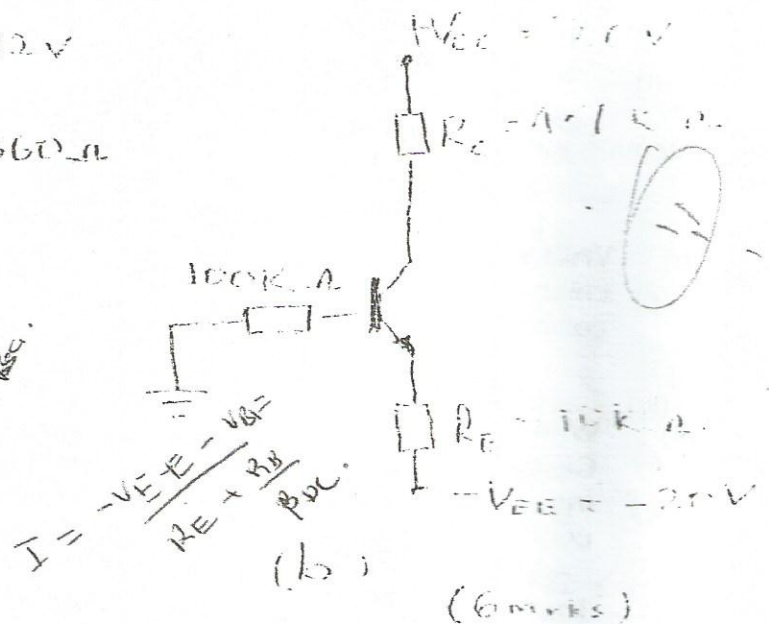 2V
+VCC = 20V
RC = 4.7 KΩ
100KΩ
RE = 10KΩ
-VEE = -20V
I = -VEE - VBE / RE + RB / βDC.
(b)
(6 mrks)